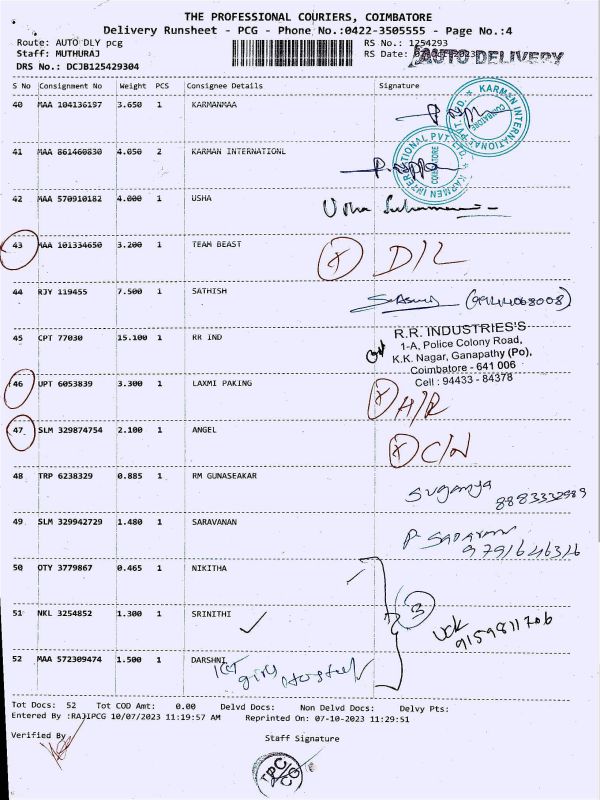 THE PROFESSIONAL COURIERS, COIMBATORE
Delivery Runsheet - PCG - Phone No.:0422-3505555 - Page No.:4
Route: AUTO DLY pcg RS No.: 1254293
Staff: MUTHURAJ RS Date: AUTO DELIVERY
DRS No.: DCJB125429304
S No Consignment No Weight PCS Consignee Details Signature
40 MAA 104136197 3.650 1 KARMANMAA
KARMEN INTERNATIONAL PVT LTD. COIMBATORE
41 MAA 861460830 4.050 2 KARMAN INTERNATIONL
KARMEN INTERNATIONAL PVT LTD. COIMBATORE
42 MAA 570910182 4.000 1 USHA Usha
43 MAA 101334650 3.200 1 TEAM BEAST X D/L
44 RJY 119455 7.500 1 SATHISH (9944068008)
45 CPT 77030 15.100 1 RR IND
R.R. INDUSTRIES'S
1-A, Police Colony Road,
K.K. Nagar, Ganapathy (Po),
Coimbatore - 641 006
Cell : 94433 - 84378
46 UPT 6053839 3.300 1 LAXMI PAKING X A/R
47 SLM 329874754 2.100 1 ANGEL X C/N
48 TRP 6238329 0.885 1 RM GUNASEAKAR Suganya
8883332989
49 SLM 329942729 1.480 1 SARAVANAN
9791646316
50 OTY 3779867 0.465 1 NIKITHA
51 NKL 3254852 1.300 1 SRINITHI 3
9159811706
52 MAA 572309474 1.500 1 DARSHNI
girls Hostel
Tot Docs: 52 Tot COD Amt: 0.00 Delvd Docs: Non Delvd Docs: Delvy Pts:
Entered By :RAJIPCG 10/07/2023 11:19:57 AM Reprinted On: 07-10-2023 11:29:51
Verified By Staff Signature
TPC